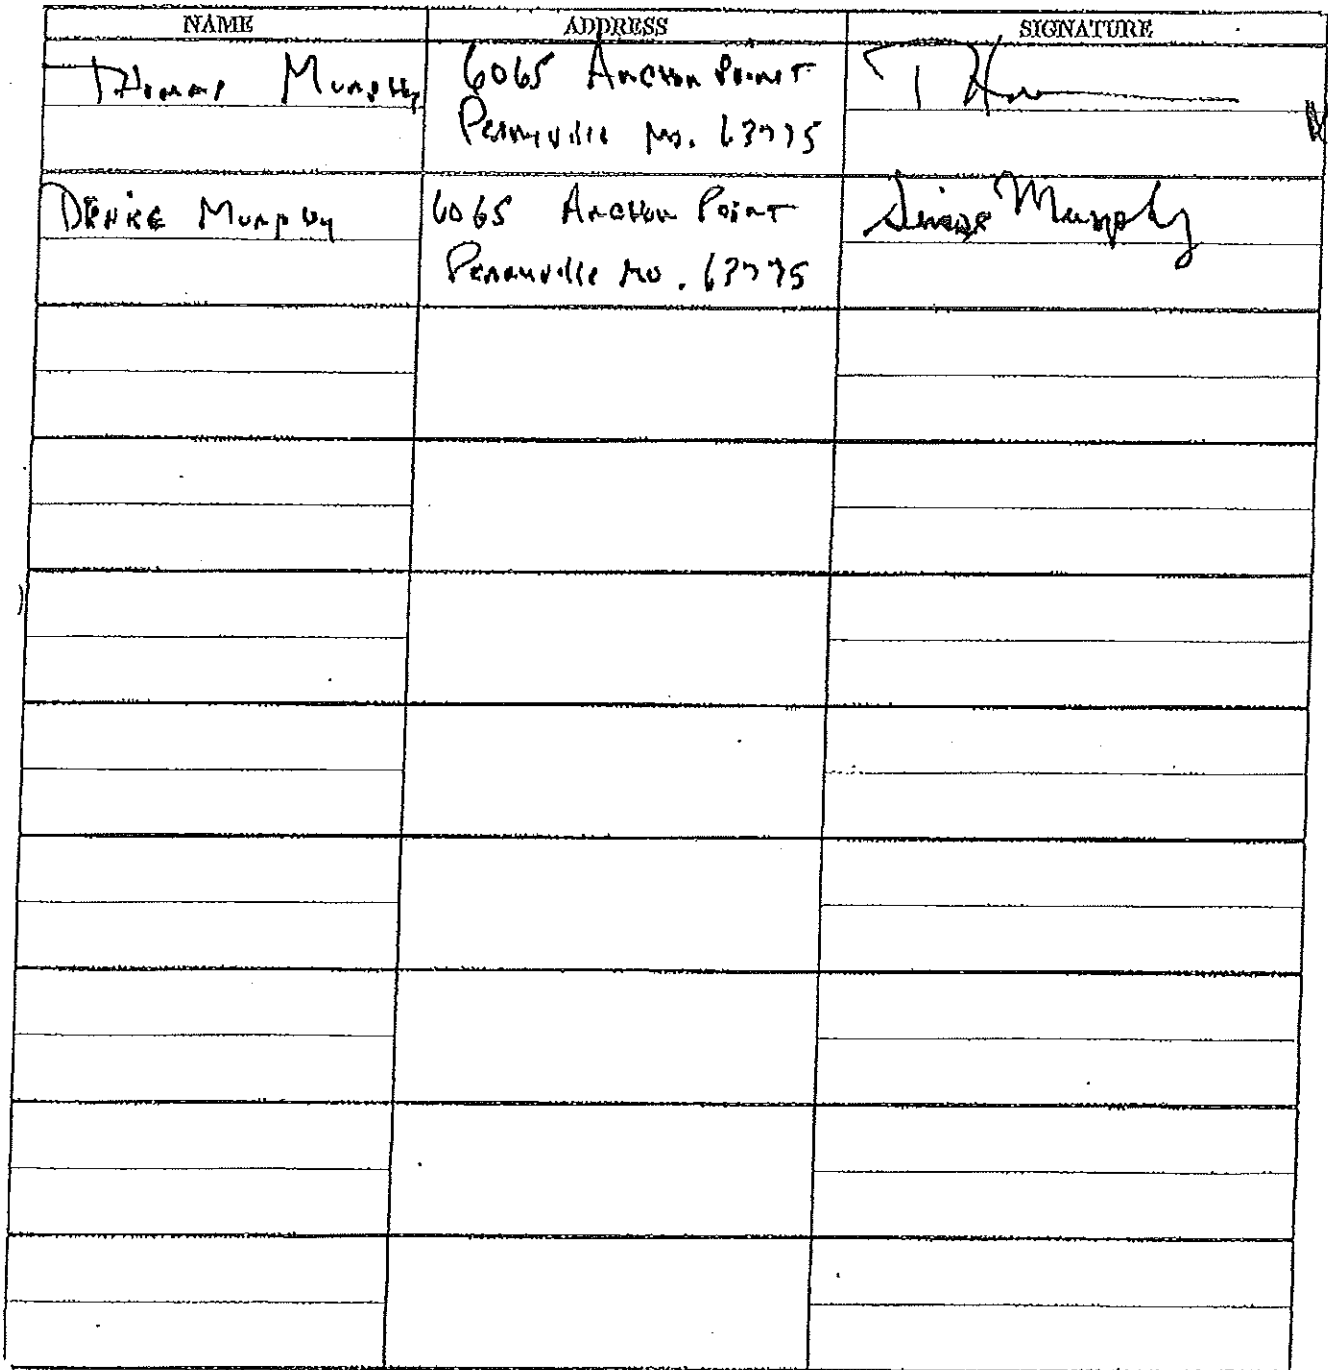 NAME ADDRESS SIGNATURE
Thomas Murphy 6065 Anchor Point
Perryville Mo. 63775
Denise Murphy 6065 Anchor Point Denise Murphy
Perryville Mo. 63775